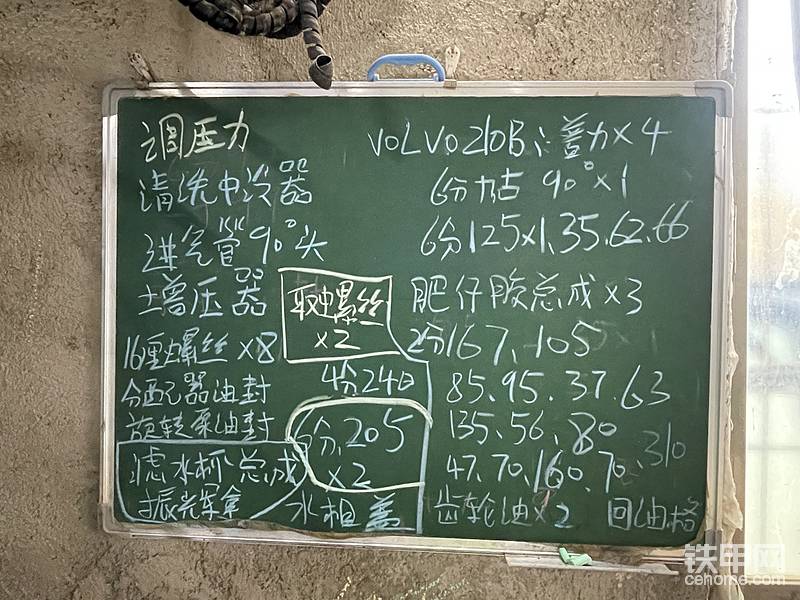 调压力
清洗中冷器
进气管90°头
增压器
16厘螺丝×8
分配器油封
旋转泵油封
滤水杯总成
取螺丝
×2
4分24日
6分.205
×2
水相盖
VOLVO210B
×4
6分 90°×1
6分125×1.35.62.66
肥仔胶总成×3
2分167、105
85.95.37.63
135.56.80
47.70.160.70.310
齿轮油×2 回油格
铁甲网
cehome.com